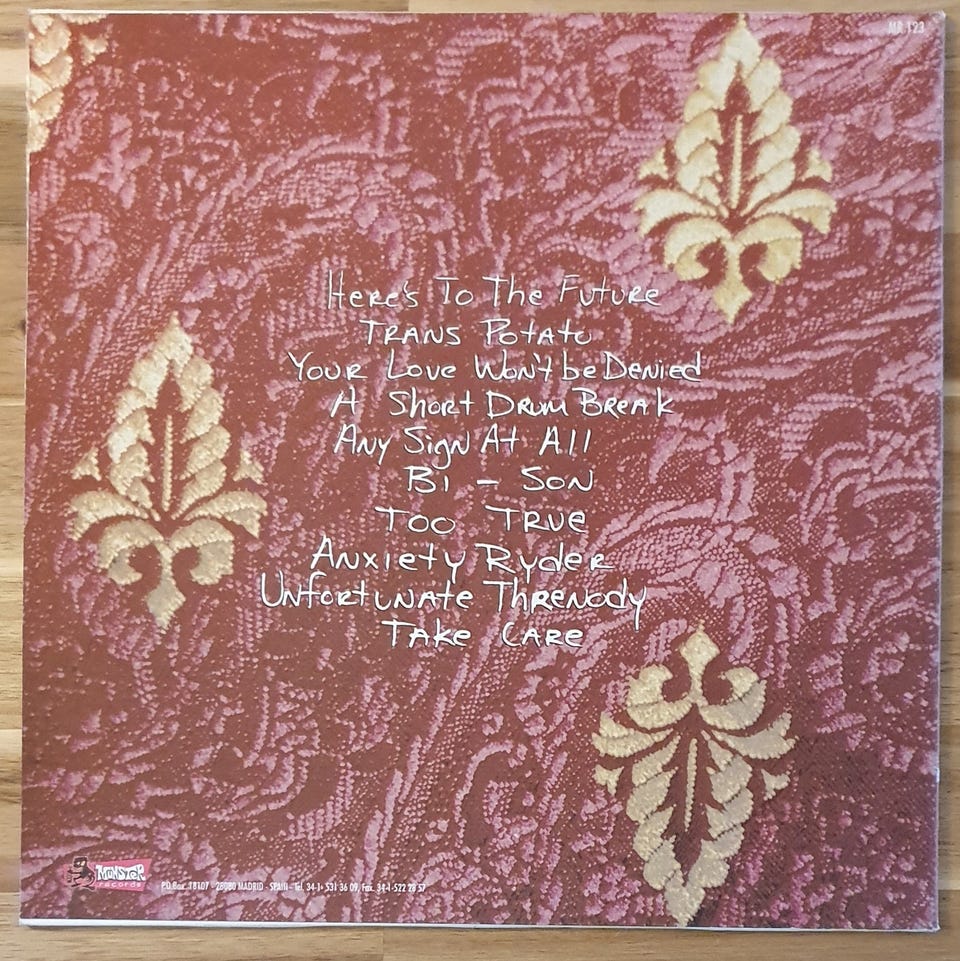 MR 123
Here's To The Future
Trans Potato
Your Love Won't be Denied
A Short Drum Break
Any Sign At All
Bi - Son
Too True
Anxiety Ryder
Unfortunate Threnody
Take Care
MONSTER
records
P.O.Box. 18107 - 28080 MADRID - SPAIN - Tel. 34-1- 531 36 09, Fax. 34-1-522 28 57